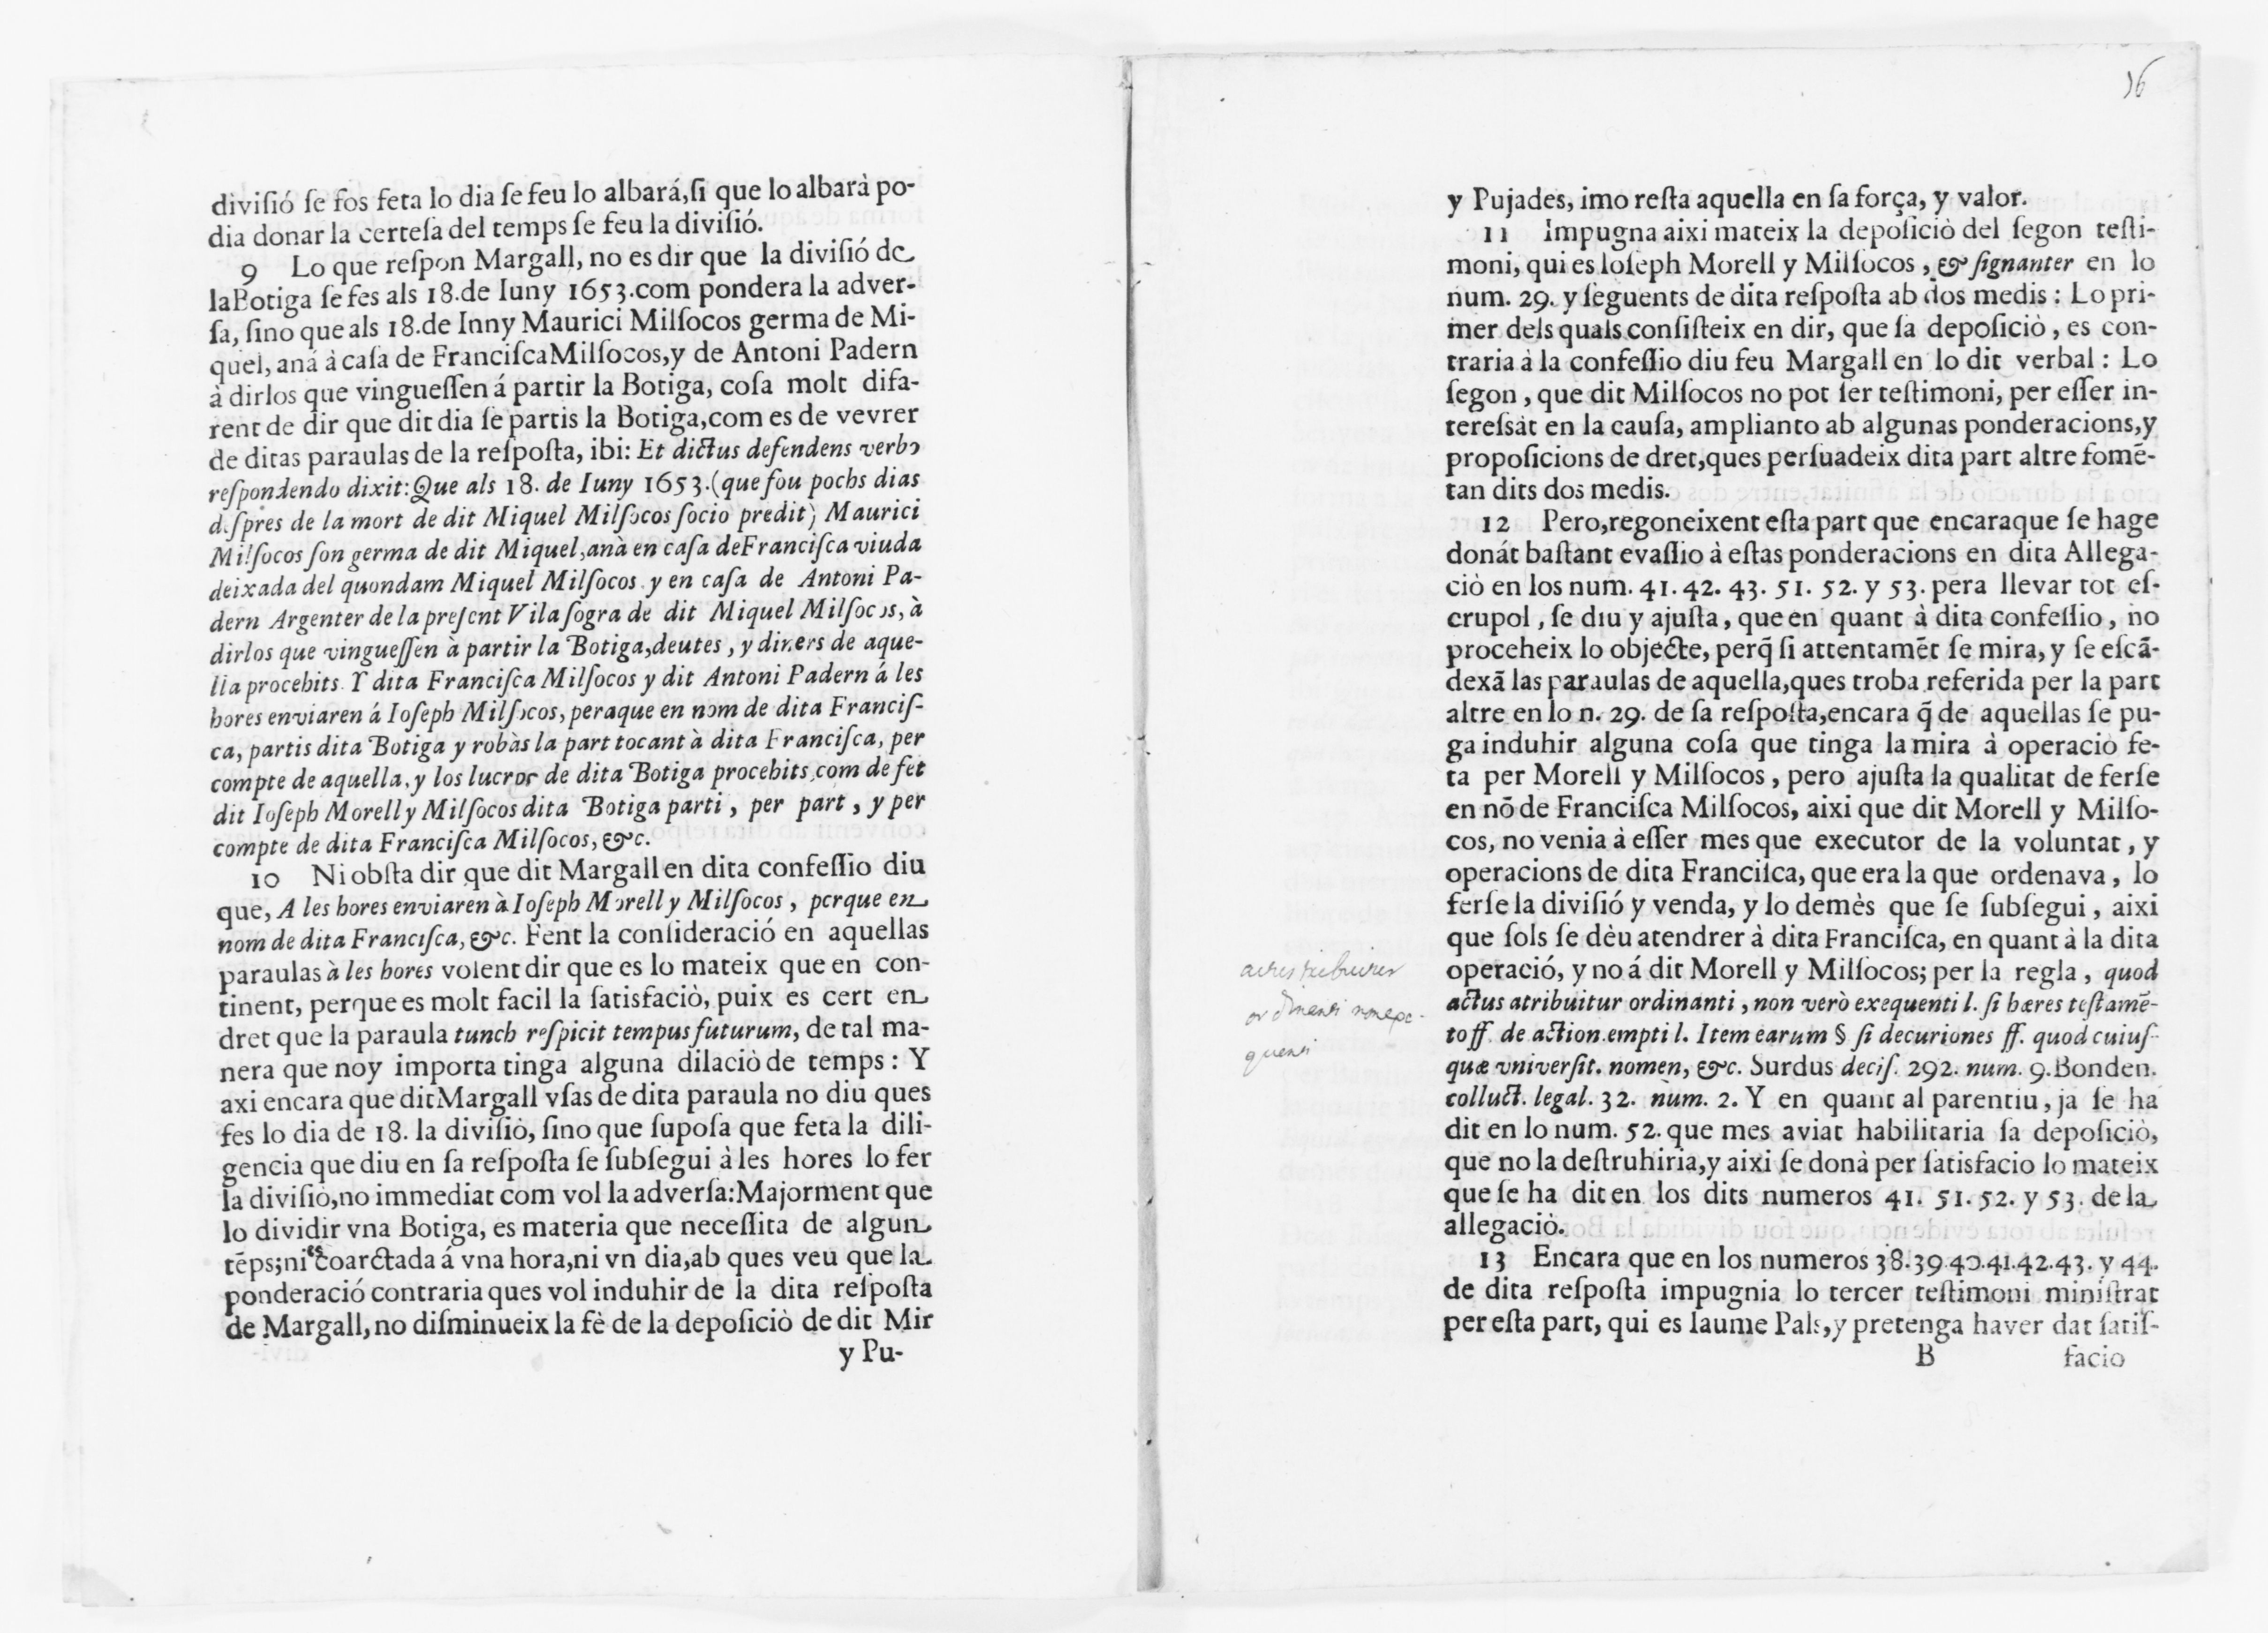 diviſió ſe fos feta lo dia ſe feu lo albará,ſi que lo albarà po-
dia donar la certeſa del temps ſe feu la diviſió.
9 Lo que reſpon Margall, no es dir que la diviſió de
la Botiga ſe fes als 18.de Iuny 1653.com pondera la adver-
ſa, ſino que als 18.de Inny Maurici Milſocos germa de Mi-
quel, aná à caſa de Franciſca Milſocos,y de Antoni Padern
à dirlos que vingueſſen á partir la Botiga, coſa molt difa-
rent de dir que dit dia ſe partis la Botiga,com es de vevrer
de ditas paraulas de la reſpoſta, ibi: Et dictus defendens verbo
reſpondendo dixit:Que als 18. de Iuny 1653.(que fou pochs dias
deſpres de la mort de dit Miquel Milſocos ſocio predit) Maurici
Milſocos ſon germa de dit Miquel,anà en caſa de Franciſca viuda
deixada del quondam Miquel Milſocos y en caſa de Antoni Pa-
dern Argenter de la preſent Vila ſogra de dit Miquel Milſocos, à
dirlos que vingueſſen à partir la Botiga,deutes, y diners de aque-
lla procehits. Y dita Franciſca Milſocos y dit Antoni Padern á les
hores enviaren á Ioſeph Milſocos, peraque en nom de dita Franciſ-
ca, partis dita Botiga y robàs la part tocant à dita Franciſca, per
compte de aquella, y los lucros de dita Botiga procehits,com de fet
dit Ioſeph Morell y Milſocos dita Botiga parti, per part, y per
compte de dita Franciſca Milſocos, &c.
10 Ni obſta dir que dit Margall en dita confeſſio diu
que, A les hores enviaren à Ioſeph Morell y Milſocos, perque en
nom de dita Franciſca, &c. Fent la conſideració en aquellas
paraulas à les hores volent dir que es lo mateix que en con-
tinent, perque es molt facil la ſatisfaciò, puix es cert en
dret que la paraula tunch reſpicit tempus futurum, de tal ma-
nera que noy importa tinga alguna dilaciò de temps: Y
axi encara que dit Margall vſas de dita paraula no diu ques
fes lo dia de 18. la diviſiò, ſino que ſupoſa que feta la dili-
gencia que diu en ſa reſpoſta ſe ſubſegui à les hores lo fer
la diviſiò,no immediat com vol la adverſa:Majorment que
lo dividir vna Botiga, es materia que neceſſita de algun
tēps;ni es coarctada á vna hora,ni vn dia,ab ques veu que la
ponderació contraria ques vol induhir de la dita reſpoſta
de Margall, no diſminueix la fè de la depoſiciò de dit Mir
y Pu-
16
y Pujades, imo reſta aquella en ſa força, y valor.
11 Impugna aixi mateix la depoſiciò del ſegon teſti-
moni, qui es Ioſeph Morell y Milſocos, & ſignanter en lo
num. 29. y ſeguents de dita reſpoſta ab dos medis: Lo pri-
mer dels quals conſiſteix en dir, que ſa depoſiciò, es con-
traria à la confeſſio diu feu Margall en lo dit verbal: Lo
ſegon, que dit Milſocos no pot ſer teſtimoni, per eſſer in-
tereſsàt en la cauſa, amplianto ab algunas ponderacions,y
propoſicions de dret,ques perſuadeix dita part altre fomē-
tan dits dos medis.
12 Pero,regoneixent eſta part que encaraque ſe hage
donát baſtant evaſſio à eſtas ponderacions en dita Allega-
ciò en los num. 41. 42. 43. 51. 52. y 53. pera llevar tot eſ-
crupol, ſe diu y ajuſta, que en quant à dita confeſſio, no
proceheix lo objecte, perq̄ ſi attentamēt ſe mira, y ſe eſcā-
dexā las paraulas de aquella,ques troba referida per la part
altre en lo n. 29. de ſa reſpoſta,encara q̄ de aquellas ſe pu-
ga induhir alguna coſa que tinga la mira à operaciò fe-
ta per Morell y Milſocos, pero ajuſta la qualitat de ferſe
en nō de Franciſca Milſocos, aixi que dit Morell y Milſo-
cos, no venia à eſſer mes que executor de la voluntat, y
operacions de dita Franciſca, que era la que ordenava, lo
ferſe la diviſió y venda, y lo demès que ſe ſubſegui, aixi
que ſols ſe dèu atendrer à dita Franciſca, en quant à la dita
operació, y no á dit Morell y Milſocos; per la regla, quod
actus atribuitur ordinanti, non verò exequenti l. ſi hæres teſtamē-
to ff. de action.empti l. Item earum § ſi decuriones ff. quod cuiuſ-
quæ vniverſit. nomen, &c. Surdus deciſ. 292. num. 9. Bonden.
colluct. legal. 32. nùm. 2. Y en quant al parentiu, ja ſe ha
dit en lo num. 52. que mes aviat habilitaria ſa depoſiciò,
que no la deſtruhiria,y aixi ſe donà per ſatisfacio lo mateix
que ſe ha dit en los dits numeros 41. 51. 52. y 53. de la
allegaciò.
13 Encara que en los numeros 38.39.40.41.42.43. y 44.
de dita reſpoſta impugnia lo tercer teſtimoni miniſtrat
per eſta part, qui es Iaume Pals,y pretenga haver dat ſatiſ-
B facio
ordinanti non exe-
quenti